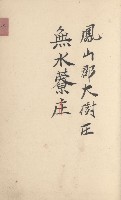 鳳山郡大樹庄
無水藔庄